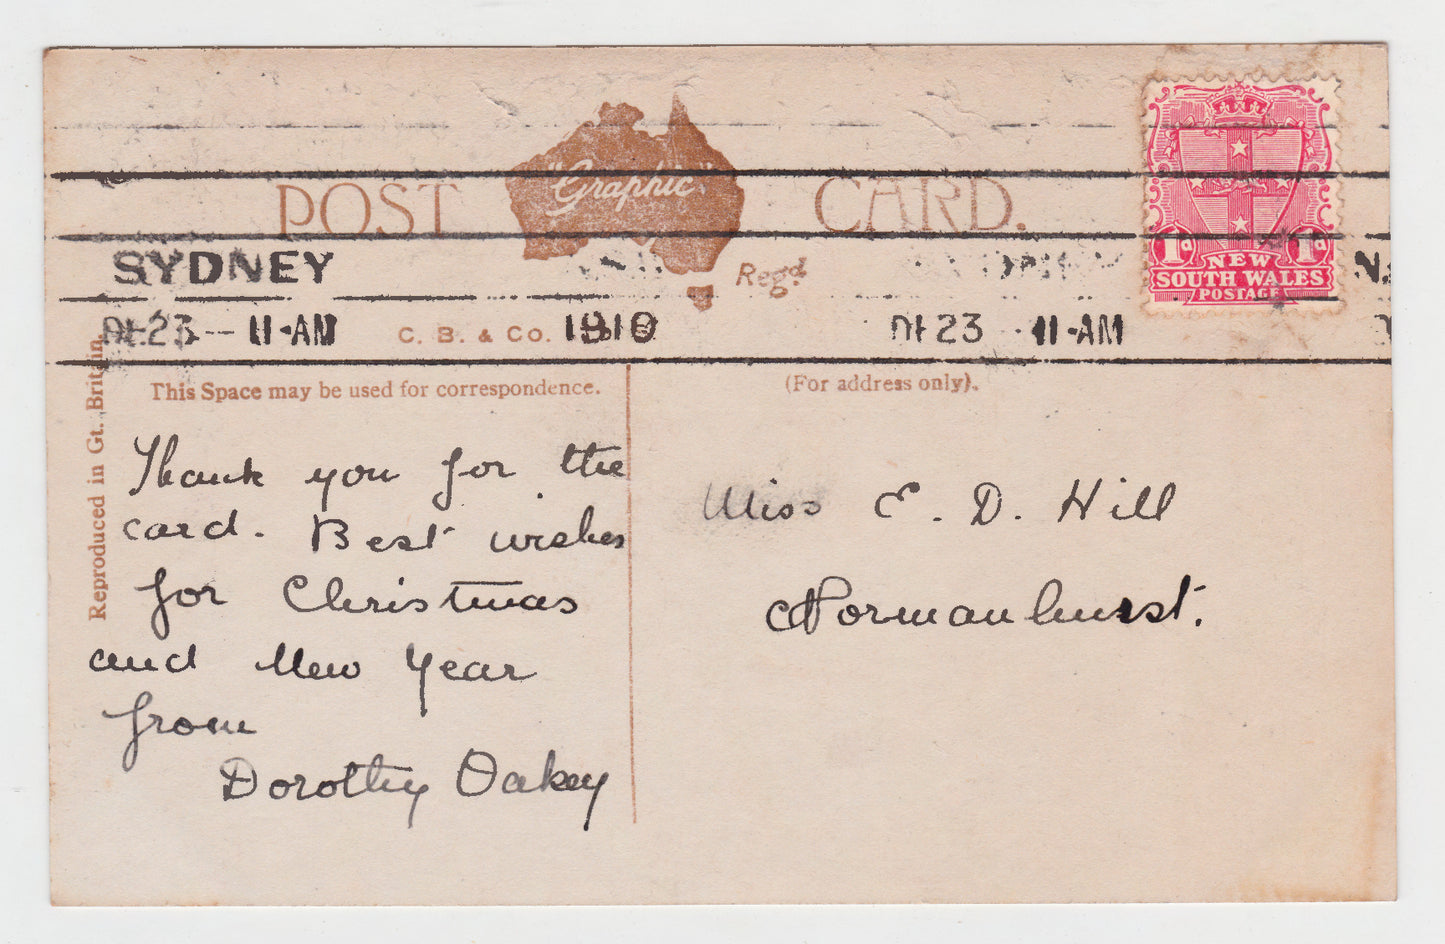 POST "Graphic" CARD.
Regd
SYDNEY
DE 23 -- 11-AM 1910 DE 23 -- 11-AM
C. B. & Co.
This Space may be used for correspondence.
(For address only).
Reproduced in Gt. Britain.
1d 1d
NEW
SOUTH WALES
POSTAGE
Thank you for the
card. Best wishes
for Christmas
and New Year
from
Dorothy Oakey
Miss E. D. Hill
Normanhurst.